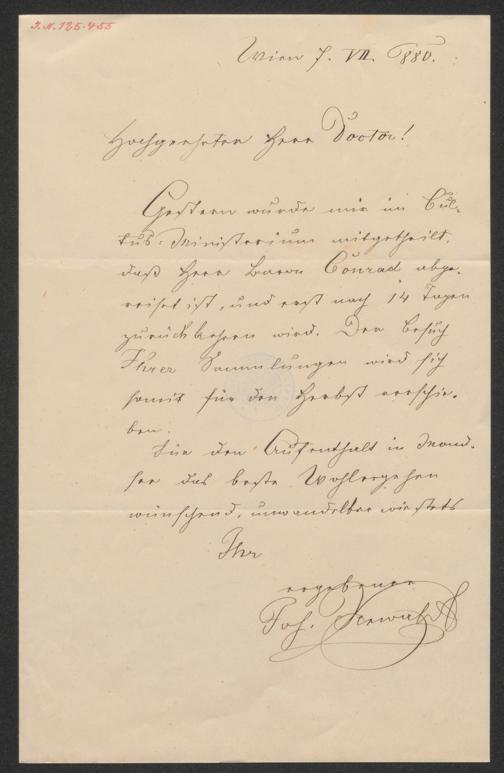 J.N. 125.455
Wien 7. VII. 1880.
Hochgeehrter Herr Doctor!
Gestern wurde mir im Cul-
tus-Ministerium mitgetheilt,
daß Herr Baron Conrad abge-
reiset ist, und erst nach 14 Tagen
zurückkehren wird. Der Besuch
Ihrer Sammlungen wird sich
somit für den Herbst verschie-
ben.
Für den Aufenthalt in Mond-
see das beste Wohlergehen
wünschend, unwandelbar wie stets
Ihr
ergebener
Joh.